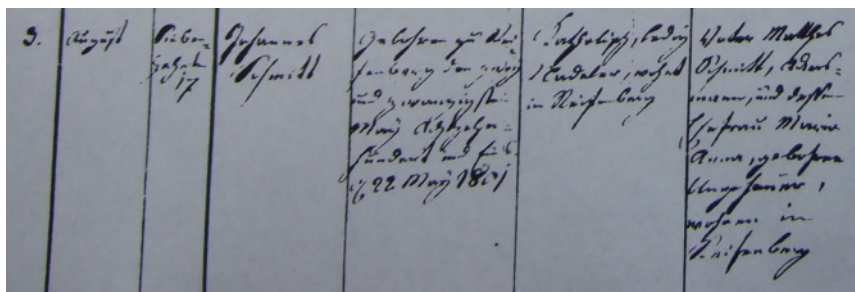 3.
August
Sieben-
zehnten
17
Johannes
Schmitt
Gebohren zu Rei-
fenberg den zwey
und zwanzigsten
May Achtzehn-
hundert und Eins
22 May 1801
Katholisch, ledig
wohnt
in Reifenberg
Vater Mathes
Schmitt, Ackers-
mann, und dessen
Ehefrau Maria
Anna, gebohrne
Ungeheuer,
wohnen in
Reifenberg